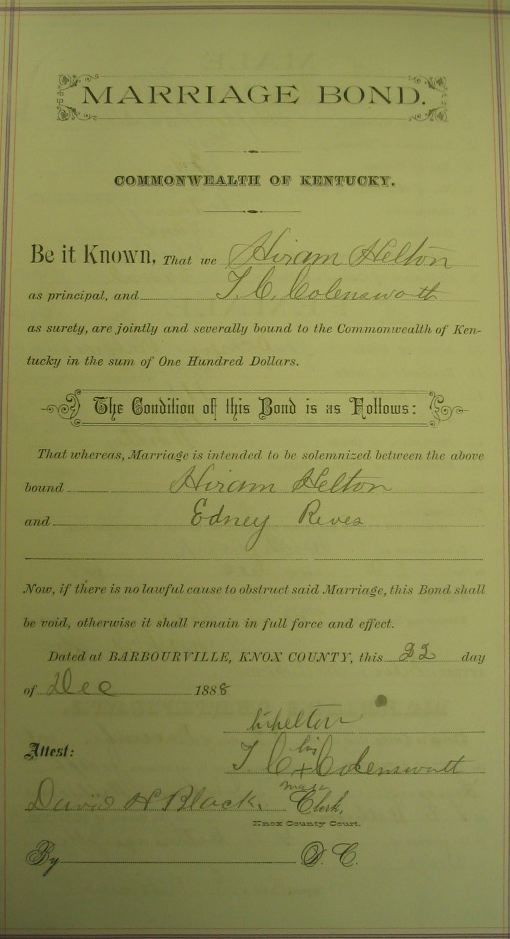 MARRIAGE BOND.
COMMONWEALTH OF KENTUCKY.
Be it Known, That we Hiram Helton
as principal, and T. C. Colensworth
as surety, are jointly and severally bound to the Commonwealth of Ken-
tucky in the sum of One Hundred Dollars.
The Condition of this Bond is as Follows:
That whereas, Marriage is intended to be solemnized between the above
bound Hiram Helton
and Edney Reves
Now, if there is no lawful cause to obstruct said Marriage, this Bond shall
be void, otherwise it shall remain in full force and effect.
Dated at BARBOURVILLE, KNOX COUNTY, this 22 day
of Dec 1888
Helton
his
Attest: T. C + Colenswatt
mark
David H Black. Clerk,
Knox County Court.
By D. C.